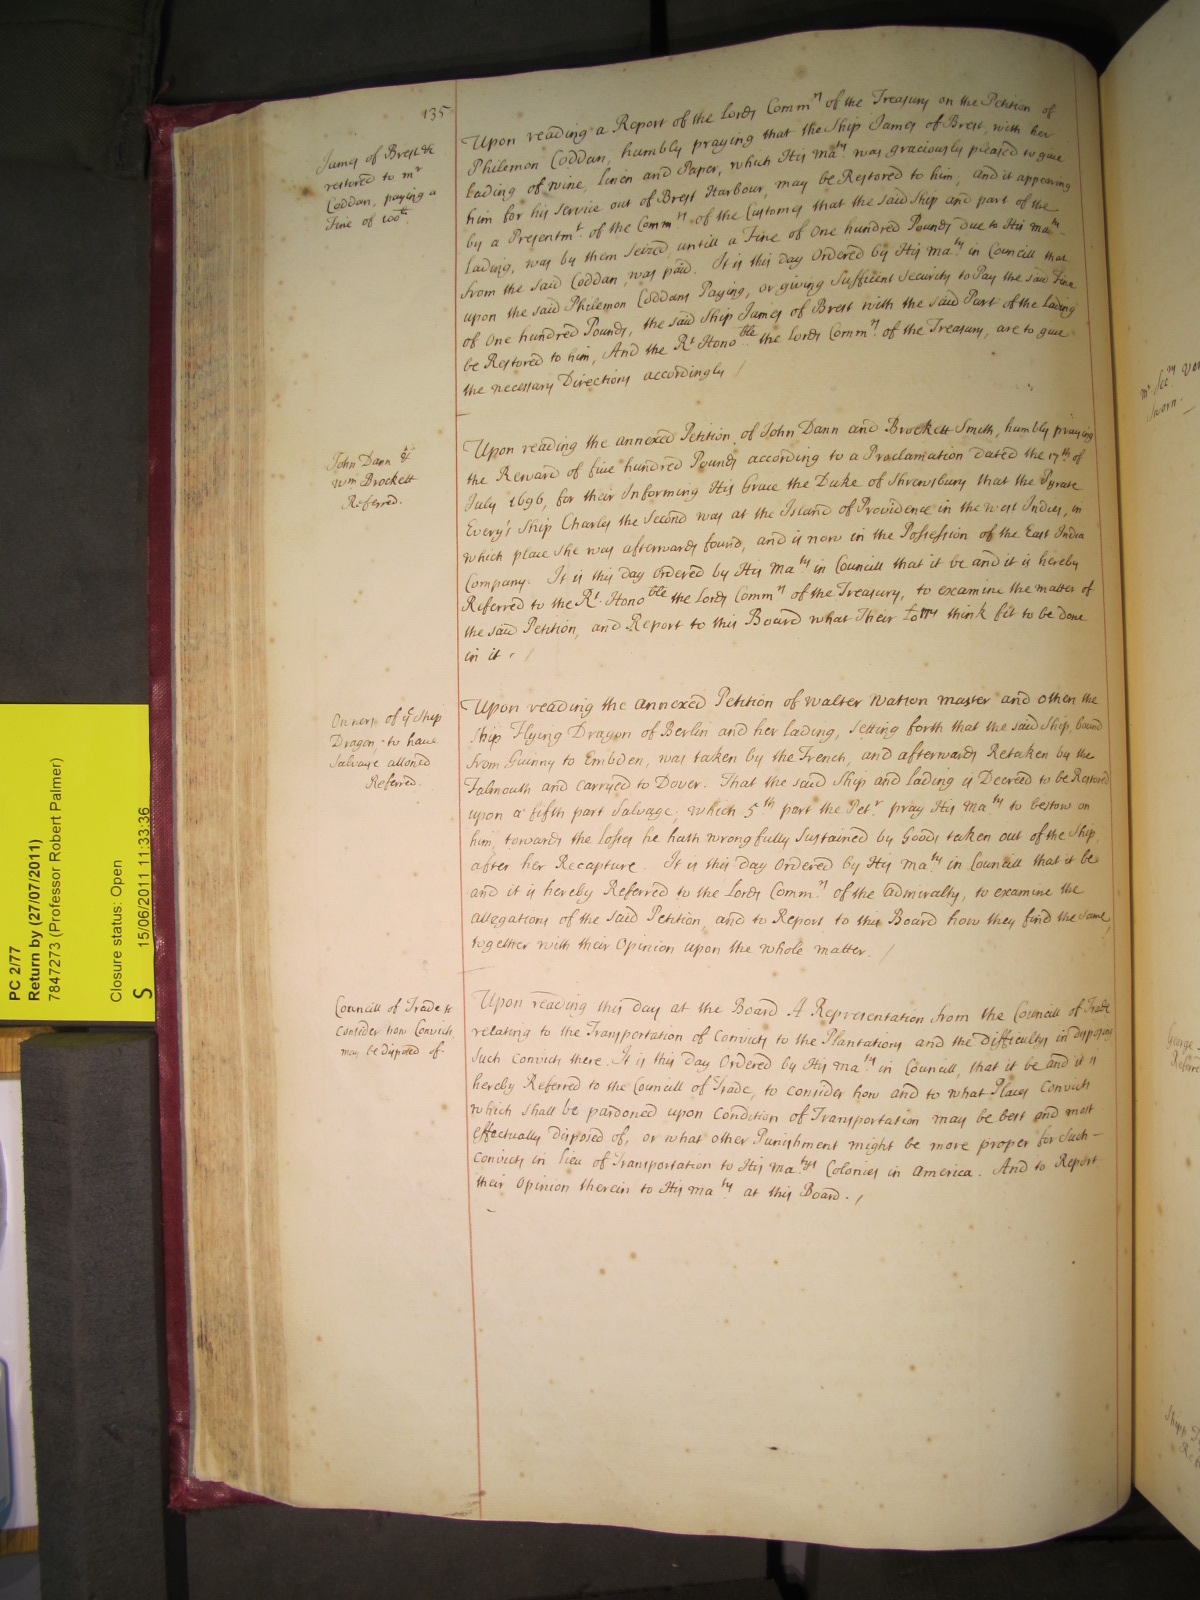 135
James of Brest &c
restored to mr
Coddan, paying a
Fine of 100ll.
Upon reading a Report of the Lords Commrs of the Treasury on the Petition of
Philemon Coddan, humbly praying that the Ship James of Brest, with her
lading of wine, linen and Paper, which His Maty was graciously pleased to give
him for his service out of Brest Harbour, may be Restored to him; and it appearing
by a Presentmt of the Commrs of the Customes that the said Ship and part of the
lading, was by them seized, untill a Fine of One hundred Pounds due to His Maty
from the said Coddan, was paid. It is this day Ordered by His Maty in Councill that
upon the said Philemon Coddans Paying, or giving sufficient security to Pay the said Fine
of One hundred Pounds, the said Ship James of Brest with the said Part of the lading
be Restored to him, And the Rt Honoble the Lords Commrs of the Treasury, are to give
the necessary Directions accordingly /
John Dann &
Wm Brockett
Referred.
Upon reading the annexed Petition of John Dann and Brockett Smith, humbly praying
the Reward of five hundred Pounds according to a Proclamation dated the 17th of
July 1696, for their Informing His Grace the Duke of Shrewsbury that the Pyrate
Every's Ship Charles the Second was at the Island of Providence in the West Indies, in
which place she was afterwards found, and is now in the Possession of the East India
Company. It is this day Ordered by His Maty in Councill that it be and it is hereby
Referred to the Rt. Honoble the Lords Commrs of the Treasury, to examine the matter of
the said Petition, and Report to this Board what Their Lopps think fit to be done
in it. /
Owners of ye Ship
Dragon, to have
Salvage allowed
Referred.
Upon reading the annexed Petition of Walter Nation master and others the
Ship Flying Dragon of Berlin and her lading, setting forth that the said Ship, bound
from Guinny to Embden, was taken by the French, and afterwards Retaken by the
Falmouth and carryed to Dover. That the said Ship and lading is Decreed to be Restored
upon a fifth part Salvage; which 5th part the Petr pray His Maty to bestow on
him, towards the losses he hath wrongfully sustained by Goods taken out of the Ship
after her Recapture. It is this day Ordered by His Maty in Councill that it be
and it is hereby Referred to the Lords Commrs of the Admiralty, to examine the
allegations of the said Petition, and to Report to this Board how they find the same,
together with their Opinion upon the whole matter. /
Councill of Trade to
consider how Convicts
may be disposed of.
Upon reading this day at the Board A Representation from the Councill of Trade
relating to the Transportation of Convicts to the Plantations and the Difficultys in disposing
such Convicts there. It is this day Ordered by His Maty in Councill, that it be and it is
hereby Referred to the Councill of Trade, to consider how and to what Places Convicts
which shall be pardoned upon Condition of Transportation may be best and most
effectually disposed of, or what other Punishment might be more proper for such
Convicts in lieu of Transportation to His Matys Colonies in America. And to Report
their Opinion therein to His Maty at this Board. /
mr Secry
Sworn.
George
PC 2/77
Return by (27/07/2011)
7847273 (Professor Robert Palmer)
Closure status: Open
S
15/06/2011 11:33:36